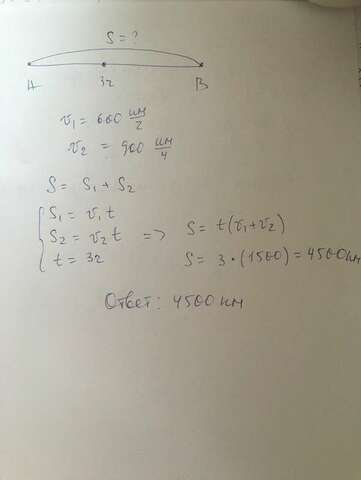 S = ?
A 3ч B
v₁ = 600 км/ч
v₂ = 900 км/ч
S = S₁ + S₂
S₁ = v₁t
S₂ = v₂t => S = t(v₁+v₂)
t = 3ч S = 3 · (1500) = 4500 км
Ответ: 4500 км